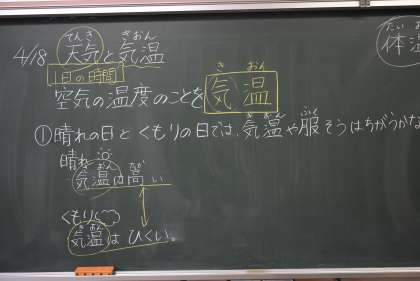 4/18 天気と気温
てんき きおん
1日の時間
空気の温度のことを 気温
き おん
①晴れの日とくもりの日では、気温や服そうはちがうかな
き おん ふく
晴れ
気温は高い
き おん たか
くもり
気温は ひくい。
き おん
体温
たい お